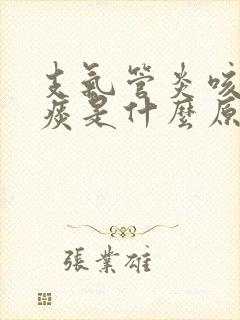 支氣管炎咳
痰是什麼原
張業雄